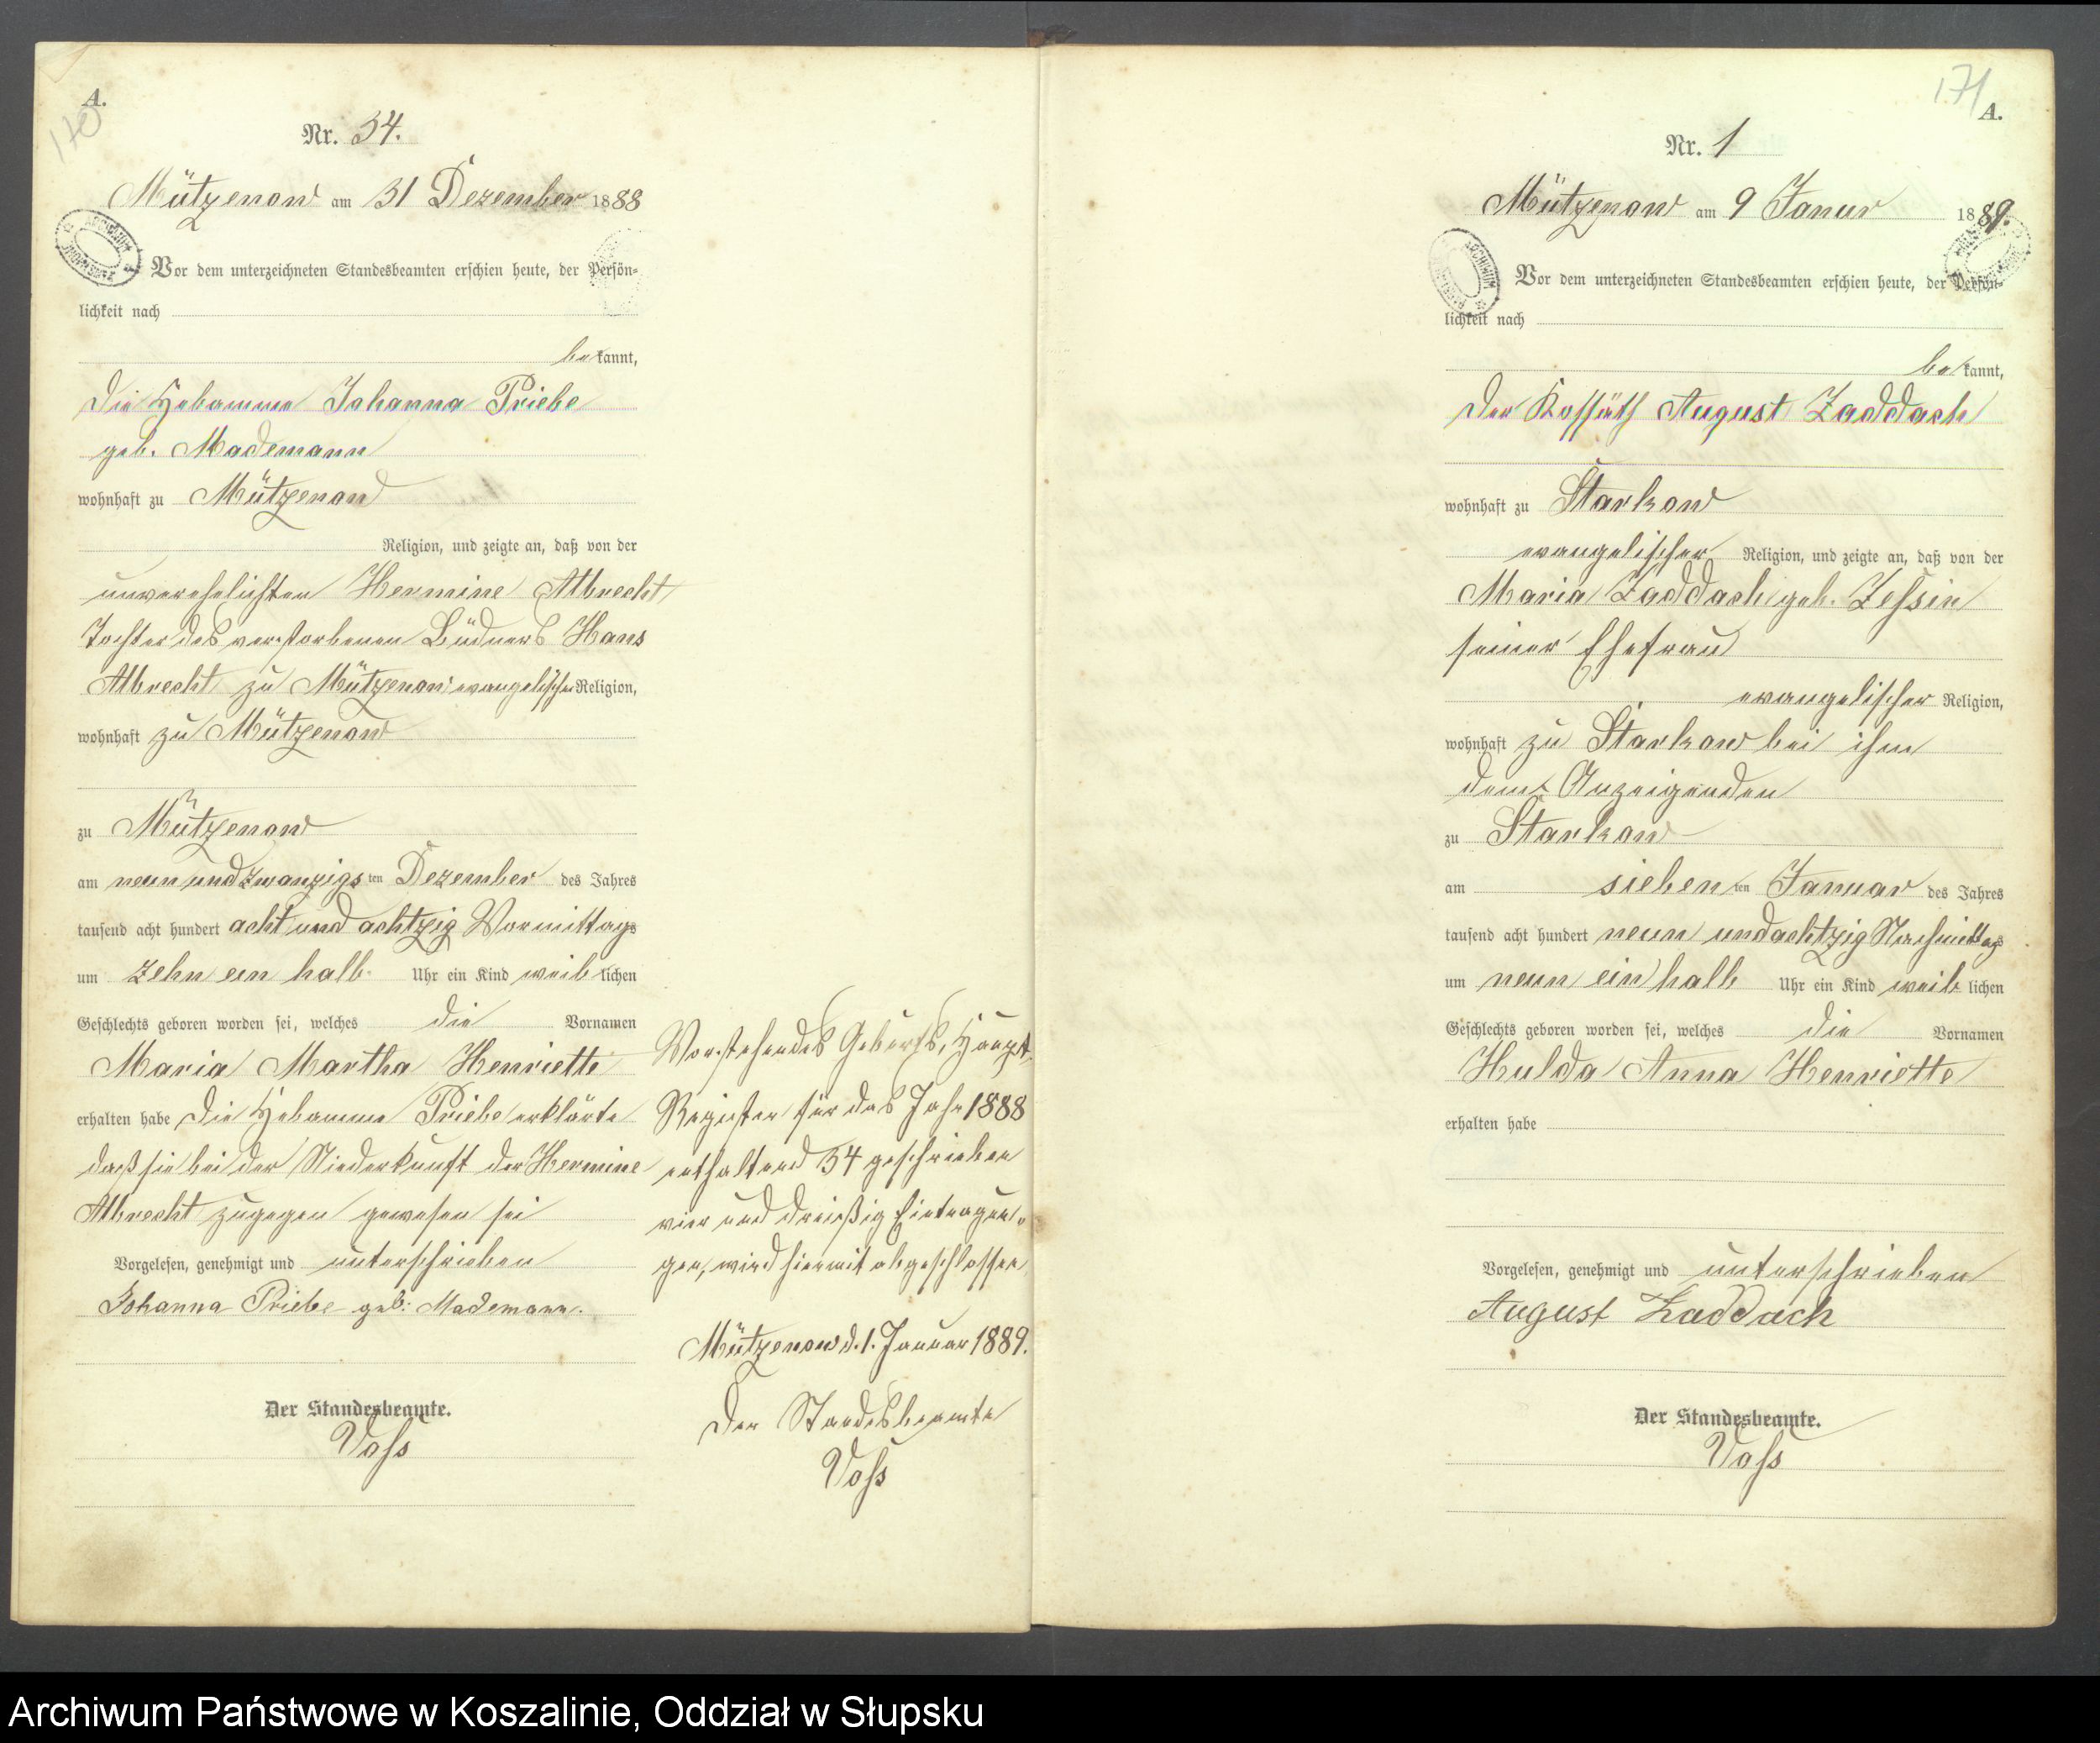 A.
170
Nr. 34.
Mützenow am 31 Dezember 1888
Vor dem unterzeichneten Standesbeamten erschien heute, der Persön-
lichkeit nach
bekannt,
die Hebamme Johanna Priebe
geb. Mademann
wohnhaft zu Mützenow
Religion, und zeigte an, daß von der
unverehelichten Hermine Albrecht
Tochter des verstorbenen Büdners Hans
Albrecht zu Mützenow evangelischer Religion,
wohnhaft zu Mützenow
zu Mützenow
am neun und zwanzigsten Dezember des Jahres
tausend acht hundert acht und achtzig Vormittags
um zehn ein halb Uhr ein Kind weiblichen
Geschlechts geboren worden sei, welches die Vornamen
Maria Martha Henriette
erhalten habe die Hebamme Priebe erklärte
daß sie bei der Niederkunft der Hermine
Albrecht zugegen gewesen sei
Vorgelesen, genehmigt und unterschrieben
Johanna Priebe geb: Mademann.
Der Standesbeamte.
Voß
Vorstehendes Geburts, Haupt
Register für das Jahr 1888
enthaltend 34 geschrieben
vier und dreißig Eintragun-
gen, wird hiermit abgeschlossen
Mützenow d. 1. Januar 1889.
Der Standesbeamte
Voß
171
A.
Nr. 1
Mützenow am 9 Janur 1889.
Vor dem unterzeichneten Standesbeamten erschien heute, der Persön-
lichkeit nach
bekannt,
der Kossäth August Zaddach
wohnhaft zu Starkow
evangelischer Religion, und zeigte an, daß von der
Maria Zaddach geb. Zessin
seiner Ehefrau
evangelischer Religion,
wohnhaft zu Starkow bei ihm
dem Anzeigenden
zu Starkow
am siebenten Januar des Jahres
tausend acht hundert neun und achtzig Nachmittags
um neun ein halb Uhr ein Kind weiblichen
Geschlechts geboren worden sei, welches die Vornamen
Hulda Anna Henriette
erhalten habe
Vorgelesen, genehmigt und unterschrieben
August Zaddach
Der Standesbeamte.
Voß
Archiwum Państwowe w Koszalinie, Oddział w Słupsku